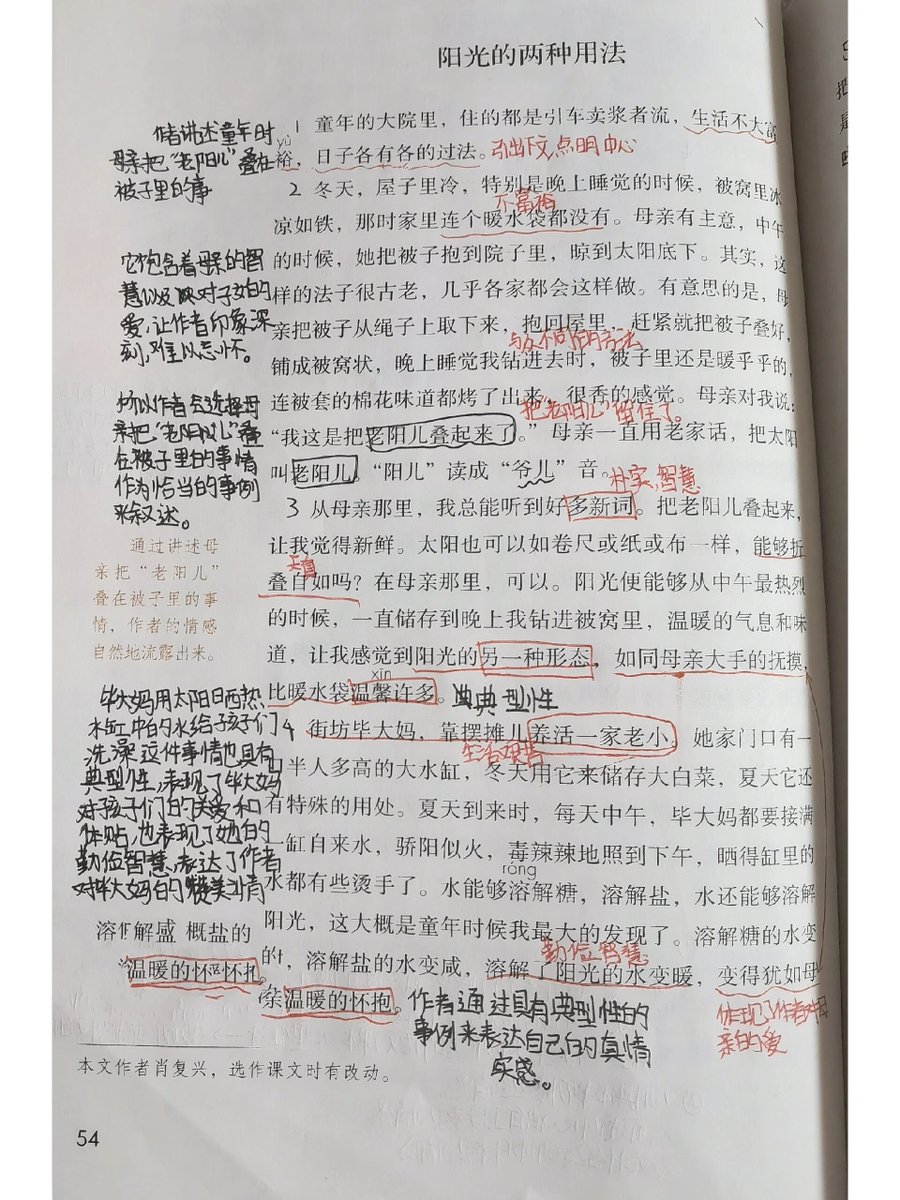 阳光的两种用法
作者讲述童年时
母亲把“老阳儿”叠在
被子里的事
yù
1 童年的大院里，住的都是引车卖浆者流，生活不大富
裕，日子各有各的过法。引出下文，点明中心
2 冬天，屋子里冷，特别是晚上睡觉的时候，被窝里冰
不富裕
凉如铁，那时家里连个暖水袋都没有。母亲有主意，中午
的时候，她把被子抱到院子里，晾到太阳底下。其实，这
样的法子很古老，几乎各家都会这样做。有意思的是，母
亲把被子从绳子上取下来，抱回屋里，赶紧就把被子叠好，
与众不同的方法
铺成被窝状，晚上睡觉我钻进去时，被子里还是暖乎乎的，
连被套的棉花味道都烤了出来，很香的感觉。母亲对我说：
“把老阳儿”留住了。
“我这是把老阳儿叠起来了。”母亲一直用老家话，把太阳
叫老阳儿。“阳儿”读成“爷儿”音。
朴实，智慧
它包含着母亲的智
慧以及她对子女的
爱，让作者印象深
刻，难以忘怀。
所以作者会选择母
亲把“老阳儿”叠
在被子里的事情
作为恰当的事例
来叙述。
3 从母亲那里，我总能听到好多新词。把老阳儿叠起来，
让我觉得新鲜。太阳也可以如卷尺或纸或布一样，能够折
天真
叠自如吗？在母亲那里，可以。阳光便能够从中午最热烈
的时候，一直储存到晚上我钻进被窝里，温暖的气息和味
道，让我感觉到阳光的另一种形态，如同母亲大手的抚摸，
xīn
比暖水袋温馨许多。典典型性
通过讲述母
亲把“老阳儿”
叠在被子里的事
情，作者的情感
自然地流露出来。
4 街坊毕大妈，靠摆摊儿养活一家老小。她家门口有一
生活艰苦
口半人多高的大水缸，冬天用它来储存大白菜，夏天它还
有特殊的用处。夏天到来时，每天中午，毕大妈都要接满
一缸自来水，骄阳似火，毒辣辣地照到下午，晒得缸里的
水都有些烫手了。水能够溶解糖，溶解盐，水还能够溶解
róng
阳光，这大概是童年时候我最大的发现了。溶解糖的水变
勤俭智慧
的，溶解盐的水变咸，溶解了阳光的水变暖，变得犹如母
亲温暖的怀抱。
毕大妈用太阳晒热
水缸中的水给孩子们
洗澡这件事情也具有
典型性，表现了毕大妈
对孩子们的关爱和
体贴，也表现了她的
勤俭智慧，表达了作者
对毕大妈的赞美之情
溶解盛 概盐的
温暖的怀 怀抱
作者通过具有典型性的
事例来表达自己的真情
实感。
体现了作者对母
亲的爱
本文作者肖复兴，选作课文时有改动。
54